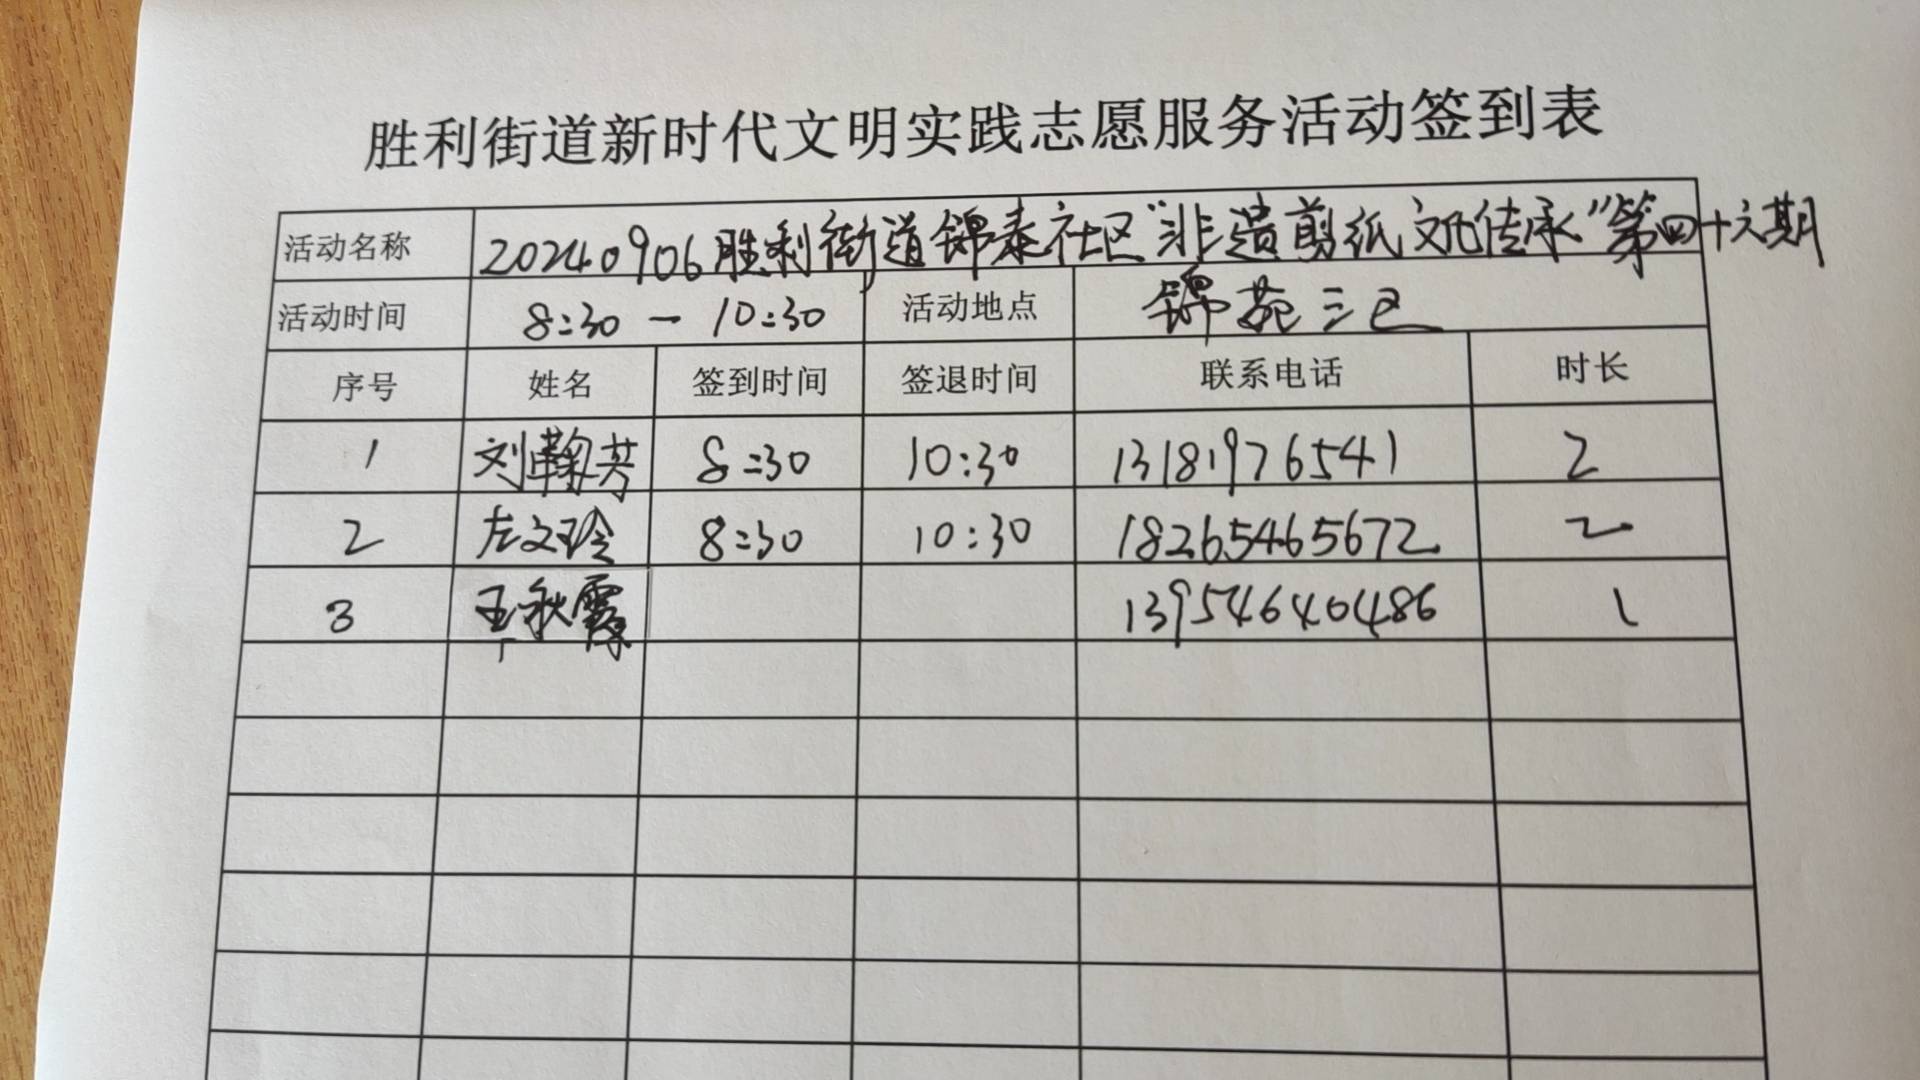 胜利街道新时代文明实践志愿服务活动签到表
活动名称 20240906胜利街道锦泰社区"非遗剪纸文化传承"第四十六期
活动时间 8:30 — 10:30 活动地点 锦苑三区
序号 姓名 签到时间 签退时间 联系电话 时长
1 刘鞠芳 8:30 10:30 13181976541 2
2 左文玲 8:30 10:30 18265465672 2
3 王秋霞 13954640486 1